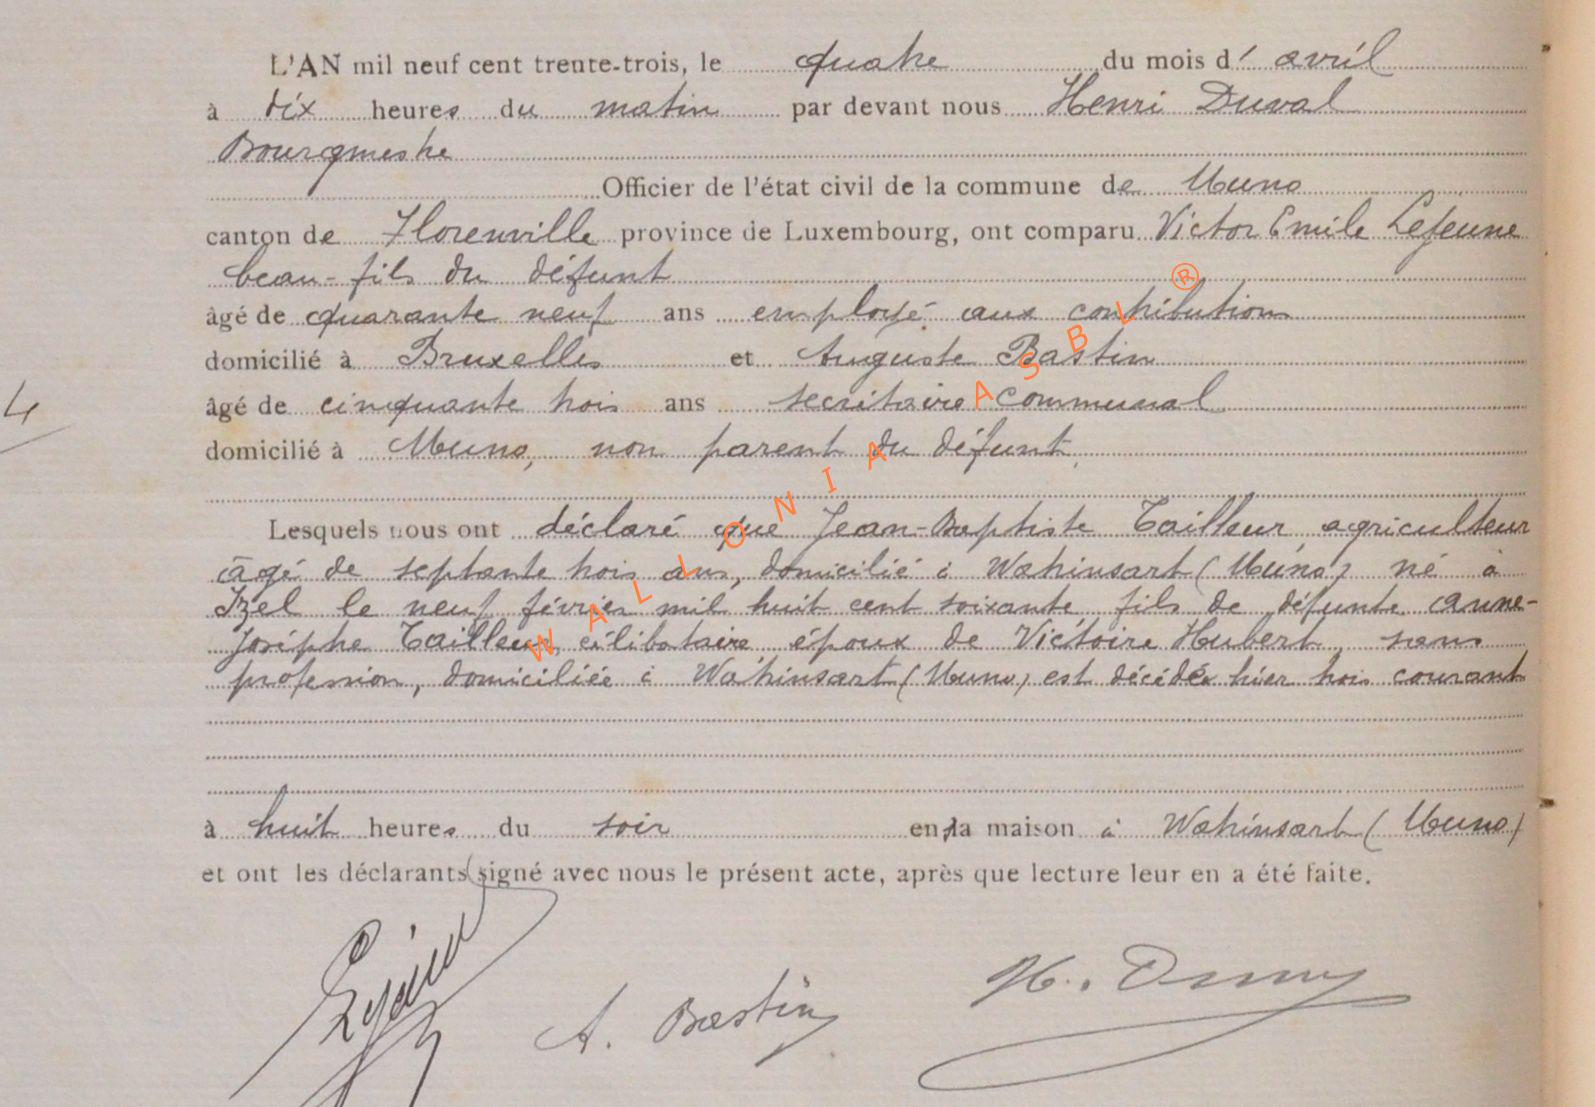 L'AN mil neuf cent trente-trois, le quatre du mois d' avril
à dix heures du matin par devant nous Henri Duval
Bourgmestre
Officier de l'état civil de la commune de Muno
canton de Florenville province de Luxembourg, ont comparu Victor Emile Lejeune
beau-fils du défunt
âgé de quarante neuf ans employé aux contributions
domicilié à Bruxelles et Auguste Bastin
âgé de cinquante trois ans secrétaire communal
4
domicilié à Muno, non parent du défunt,
Lesquels nous ont déclaré que Jean-Baptiste Tailleur agriculteur
âgé de septante trois ans, domicilié à Watrinsart (Muno) né à
Izel le neuf février mil huit cent soixante fils de défunte anne-
Josèphe Tailleur, célibataire époux de Victoire Hubert sans
profession, domiciliée à Watrinsart (Muno) est décédé hier trois courant
à huit heures du soir en sa maison à Watrinsart (Muno)
et ont les déclarants signé avec nous le présent acte, après que lecture leur en a été faite.
Lejeune
A. Bastin
H. Duval
WALLONIA ASBL ®